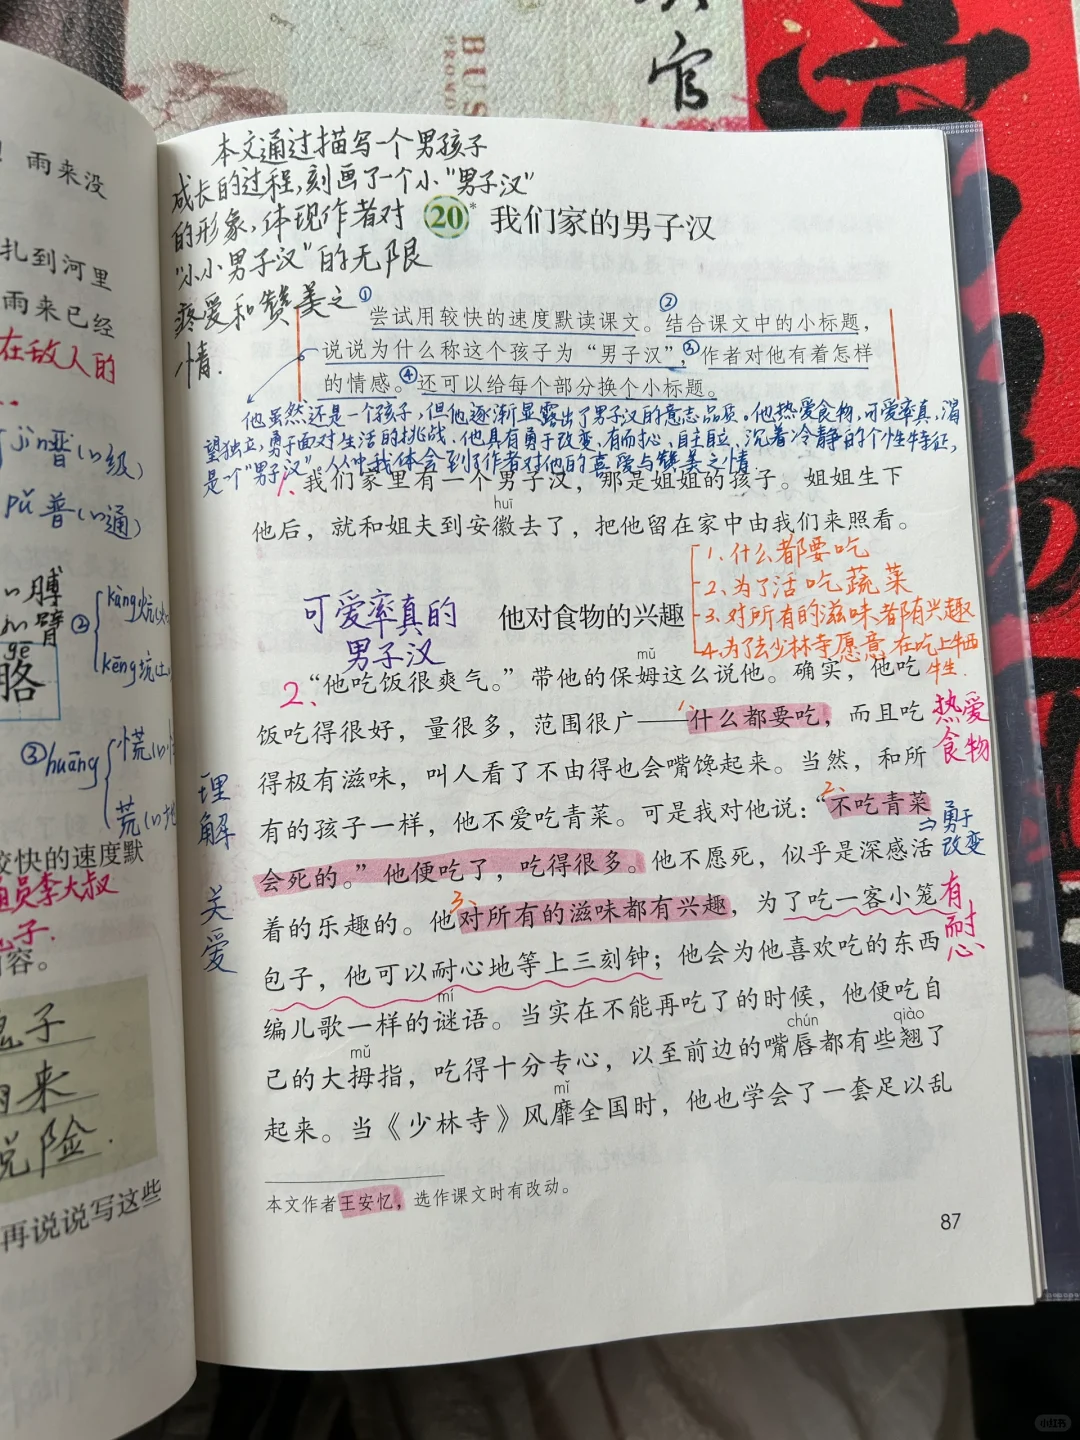 官
BUS
PROND
！雨来没
扎到河里
雨来已经
在敌人的
jìn晋(〃级)
pǔ普(〃通)
〃膊
〃臂
gē
胳
②
kàng炕
kēng坑
③huāng
慌
荒(〃地
较快的速度默
通员李大叔
内容。
雨来
脱险.
再说说写这些
本文通过描写一个男孩子
成长的过程,刻画了一个小“男子汉”
的形象,体现作者对
“小小男子汉”的无限
疼爱和赞美之
情.
20* 我们家的男子汉
①尝试用较快的速度默读课文。②结合课文中的小标题，
说说为什么称这个孩子为“男子汉”，③作者对他有着怎样
的情感。④还可以给每个部分换个小标题。
他虽然还是一个孩子,但他逐渐显露出了男子汉的意志品质。他热爱食物,可爱率真,渴
望独立,勇于面对生活的挑战,他具有勇于改变,有耐心,自主自立,沉着冷静的个性特征,
是个“男子汉”,从中我体会到了作者对他的喜爱与赞美之情
1、我们家里有一个男子汉，那是姐姐的孩子。姐姐生下
huī
他后，就和姐夫到安徽去了，把他留在家中由我们来照看。
可爱率真的
男子汉
他对食物的兴趣
1、什么都要吃
2、为了活吃蔬菜
3、对所有的滋味都有兴趣
4、为了去少林寺愿意在吃上牺
牲.
mǔ
2、“他吃饭很爽气。”带他的保姆这么说他。确实，他吃
1、
饭吃得很好，量很多，范围很广——什么都要吃，而且吃
热爱
食物
得极有滋味，叫人看了不由得也会嘴馋起来。当然，和所
2、
有的孩子一样，他不爱吃青菜。可是我对他说：“不吃青菜
⇒勇于
改变
会死的。”他便吃了，吃得很多。他不愿死，似乎是深感活
3、
着的乐趣的。他对所有的滋味都有兴趣，为了吃一客小笼
有
耐
心
包子，他可以耐心地等上三刻钟；他会为他喜欢吃的东西
mí
编儿歌一样的谜语。当实在不能再吃了的时候，他便吃自
mǔ chún qiào
己的大拇指，吃得十分专心，以至前边的嘴唇都有些翘了
mǐ
起来。当《少林寺》风靡全国时，他也学会了一套足以乱
理
解
关
爱
本文作者王安忆，选作课文时有改动。
87
小红书